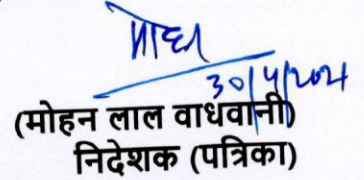 मोहन
30/4/2021
(मोहन लाल वाधवानी)
निदेशक (पत्रिका)